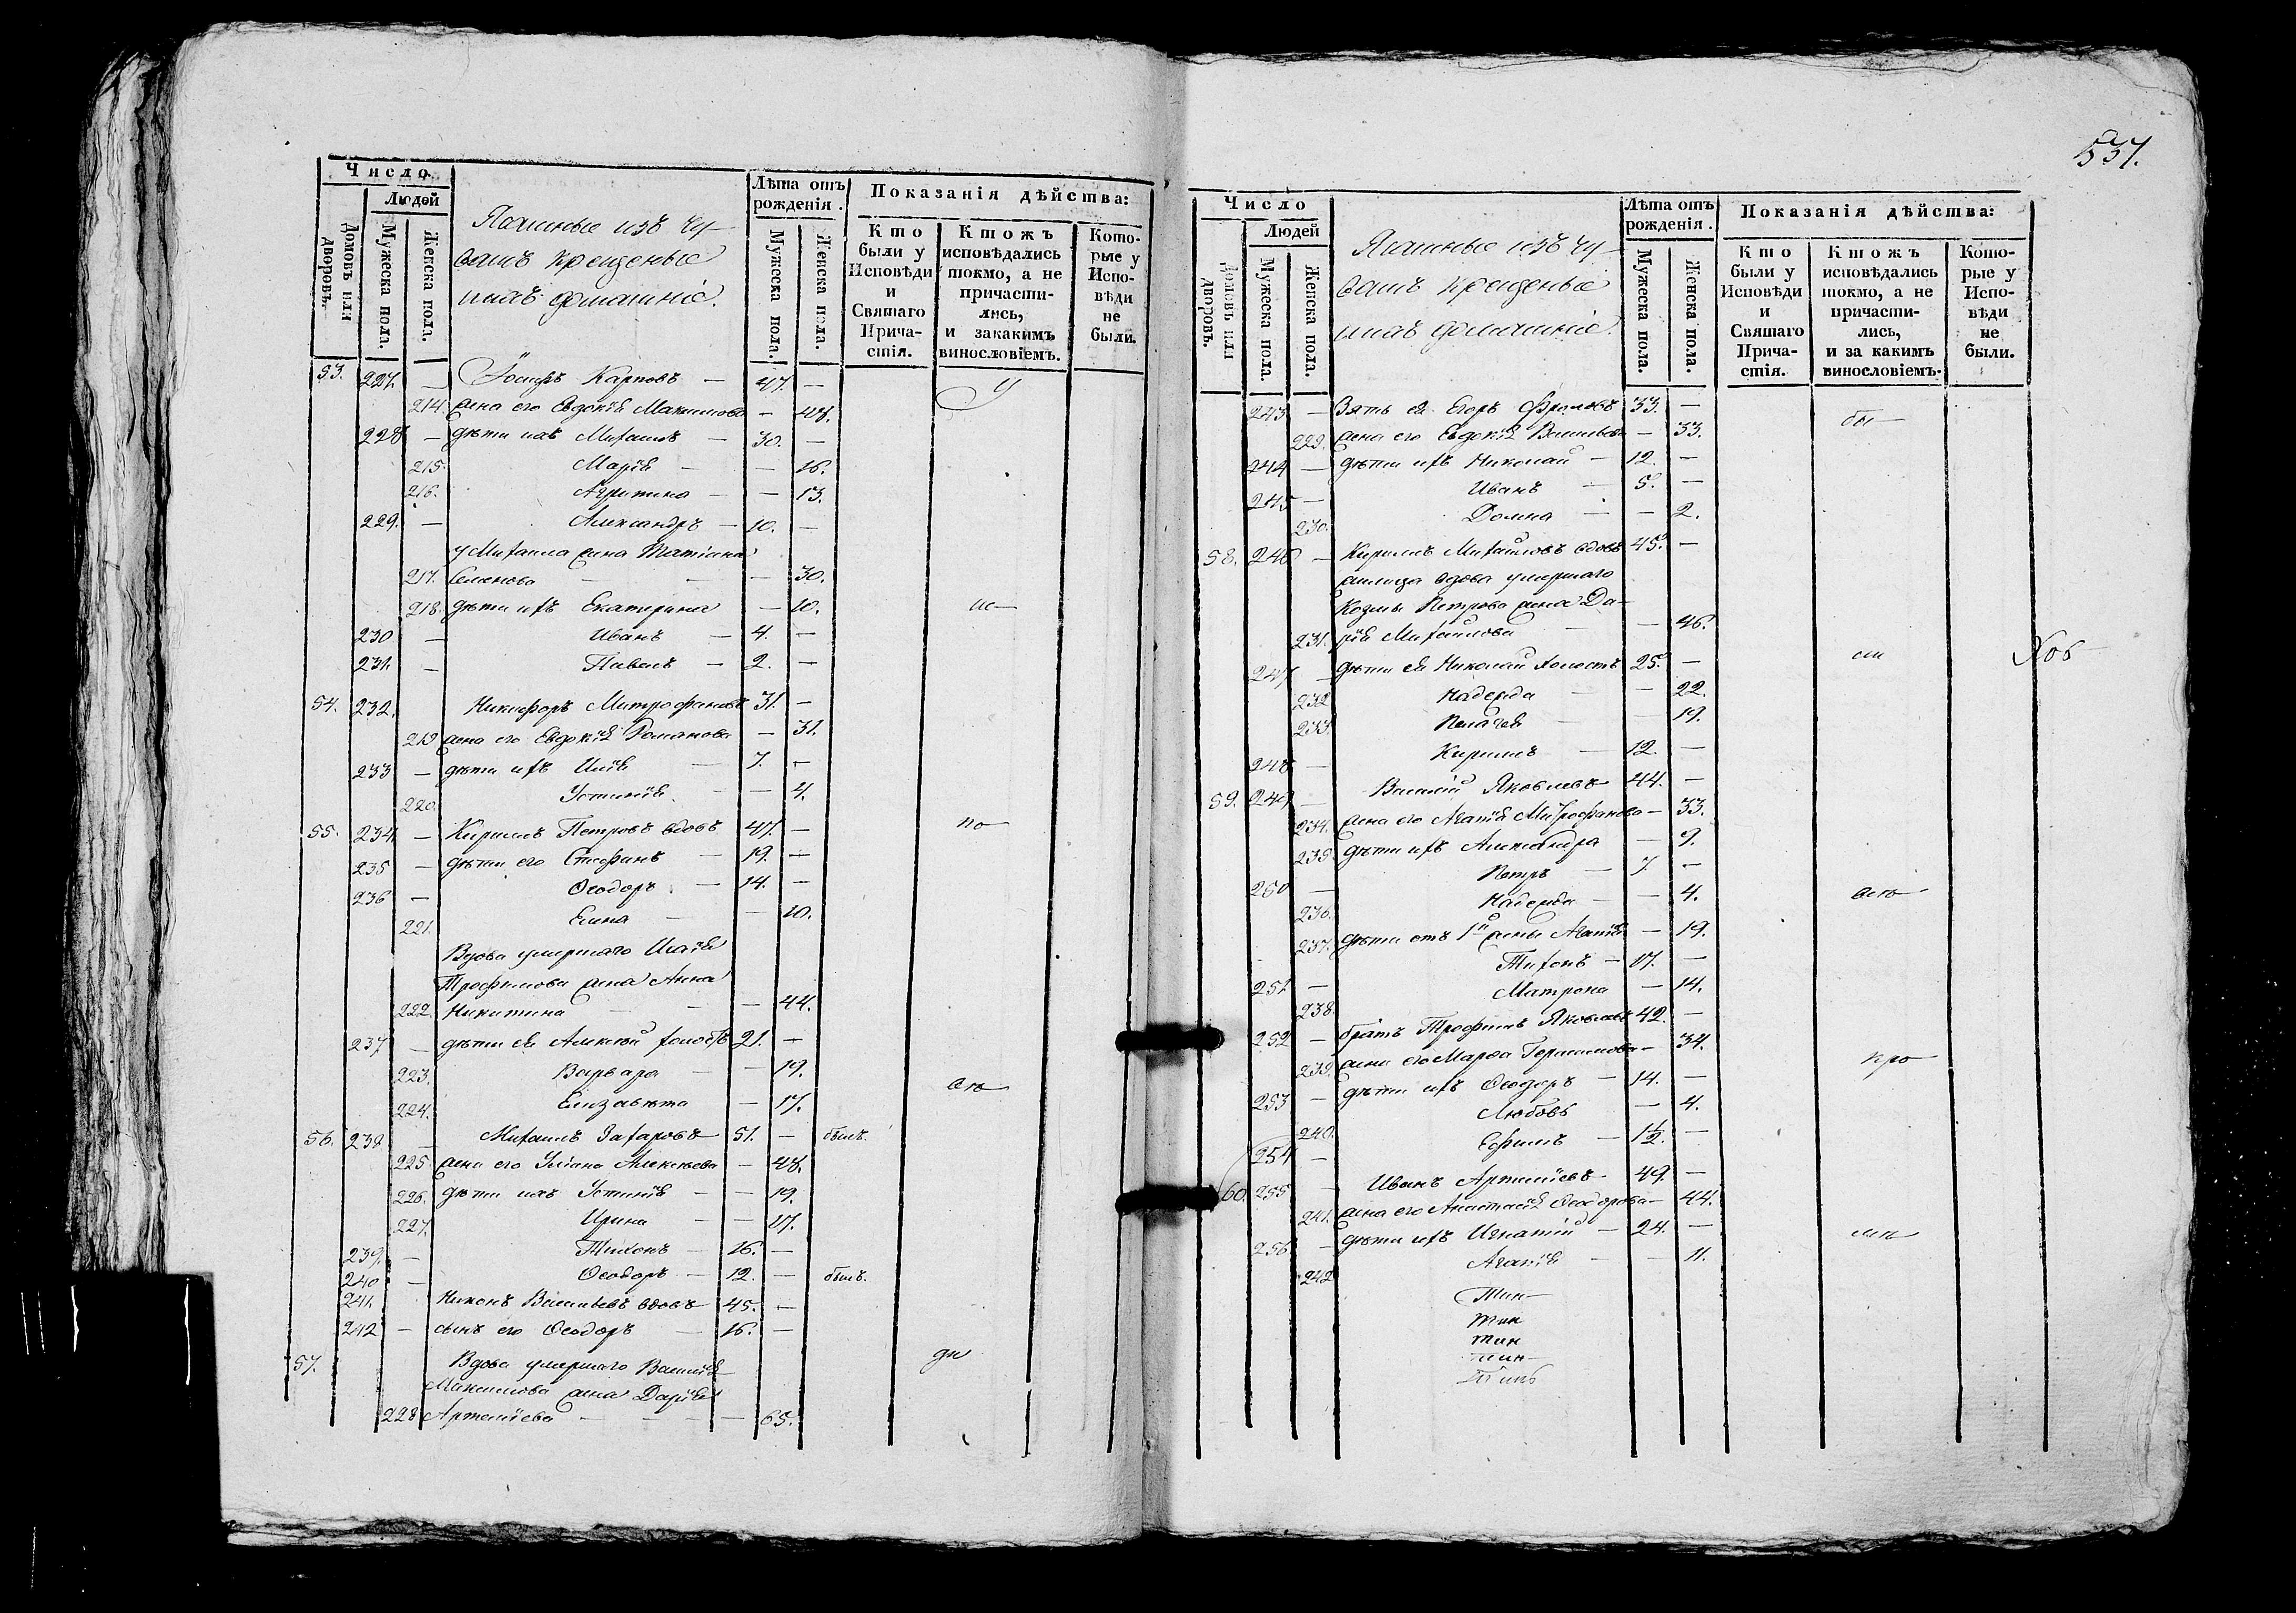 Число.
Людей
Домовъ или дворовъ.
Мужеска пола.
Женска пола.
Ясашные изъ чу-
вашъ крещеные
и ихъ домашніе.
Лѣта отъ рожденія.
Мужеска пола.
Женска пола.
Показанія дѣйства:
Кто были у Исповѣди и Святаго Причастія.
Ктожъ исповѣдались токмо, а не причастились, и закакимъ винословіемъ.
Которые у Исповѣди не были.
53. 227. — Іосифъ Карповъ — 47. —
214. жена его Евдокія Максимова — 48.
228 — дѣти ихъ Михаилъ — 30. —
215. Марія — — 16.
216. — — 13.
229. — Александръ — 10. —
у Михаила жена Татіана
217. Семенова — — — 30.
218. дѣти ихъ Екатерина — 10. ис—
230 — Иванъ — 4. —
231. — Павелъ — 2. —
54. 232. Никифоръ Митрофановъ 31. —
219 жена его Евдокія Романова — 31.
233 — дѣти ихъ Илія — 7. —
220. Устинія — — 4.
55. 234. — Кириллъ Петровъ вдовъ 47. — по—
235 — дѣти его Стефанъ — 19. —
236 — Ѳеодоръ — 14. —
221. Елена — — 10.
Вдова умершаго
Трофимова жена Анна
222. Никитина — — — 44.
237 — дѣти ея Алексѣй холостъ 21. —
223. Варвара — — 19.
224. Елизавета — 17.
56. 238 — Михаилъ Захаровъ 51. — былъ.
225. жена его Уліана Алексѣева — 48.
226. дѣти ихъ Устинія — — 19.
227. Ирина — — 17.
239. — Тихонъ — 16. —
240 — Ѳеодоръ — 12. — былъ.
241. Никонъ Васильевъ вдовъ — 45. —
242 — сынъ его Ѳеодоръ — 16. —
57. Вдова умершаго Василія
Максимова жена Дарія
228 Артеміева — — — — 65.
537.
Число
Людей
Домовъ или дворовъ.
Мужеска пола.
Женска пола.
Ясашные изъ чу-
вашъ крещеные
и ихъ домашніе.
Лѣта отъ рожденія.
Мужеска пола.
Женска пола.
Показанія дѣйства:
Кто были у Исповѣди и Святаго Причастія.
Ктожъ исповѣдались токмо, а не причастились, и за какимъ винословіемъ.
Которые у Исповѣди не были.
243 — Зять ея Егоръ Фроловъ 33. —
229. жена его Евдокія Васильева — 33.
244 — дѣти ихъ Николай — 12. —
245 — Иванъ — 5. —
230. Домна — — 2.
58. 246 — Кириллъ Михайловъ вдовъ 45. —
вдова умершаго
Козмы Петрова жена Да-
231. рія Михайлова — — 46.
247 — дѣти ея Николай холостъ 25. —
232 Надежда — — 22.
233. Пелагея — — 19.
248 — Кириллъ — 12. —
59. 249 — Василій Яковлевъ 44. —
234. жена его Агапія Митрофанова — 33.
235. дѣти ихъ Александра — 9.
250 — Петръ — 7. —
236. Надежда — — 4.
237. дѣти отъ 1й жены Агапія — 19.
251 — Тихонъ — 17. —
238. Матрона — 14.
252 — братъ Трофимъ Яковлевъ 42. —
239. жена его Марѳа Герасимова — 34. про
253 — дѣти ихъ Ѳеодоръ — 14. —
240. Любовь — 4.
254 — Ефимъ — 1½. —
60. 255 — Иванъ Артеміевъ 49. —
241. жена его Анастасія Ѳеодорова — 44.
256 — дѣти ихъ Игнатій — 24. —
242 Агапія — — 11.